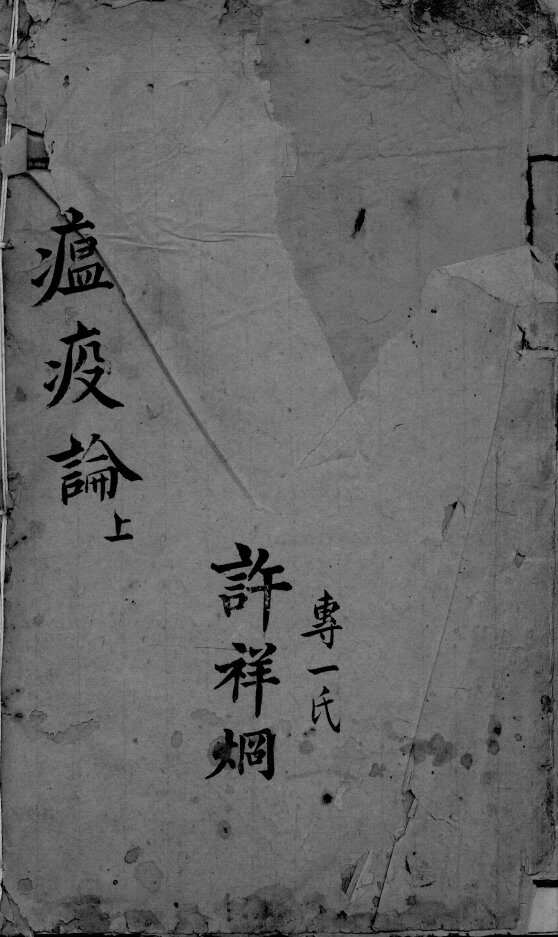 專一氏
許祥焵
瘟疫論上